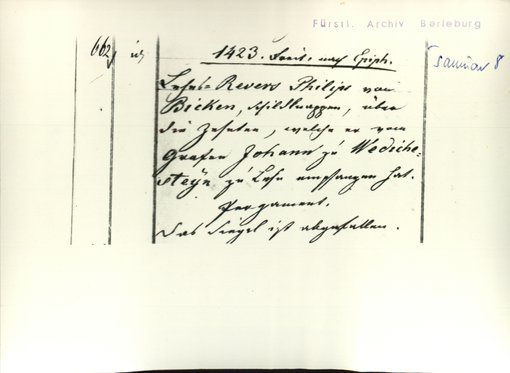 Fürstl. Archiv Berleburg
662
1423. Freit. nach Epiph.
Januar 8
Lehns-Revers Philips von
Bicken, Schildknappen, über
die Zehnten, welche er vom
Grafen Johann zu Wedichen-
steyn zu Lehn empfangen hat.
Pergament.
Das Siegel ist abgefallen.